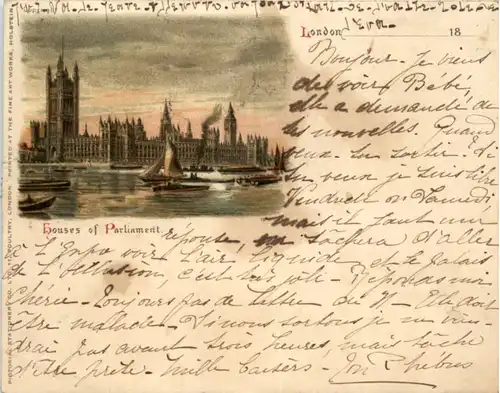 London 18
Bonjour - je viens
de voir Bébé,
elle a demandé de
tes nouvelles. Quand
veux-tu sortir. Si
tu veux je suis libre
Vendredi ou Samedi
mais il faut une
réponse, on tâchera d'aller
à l'Expo voir l'air liquide et le palais
de l'Illusion, c'est très joli - Réponds moi
Chérie - toujours pas de lettre de V - Elle doit
être malade - Si nous sortons je ne vien-
drai pas avant trois heures, mais tâche
d'être prête - Mille baisers - Ton Phébus
Houses of Parliament.
PICTORIAL STATIONERY CO. LTD. POULTRY, LONDON. PRINTED AT THE FINE ART WORKS, HOLSTEIN